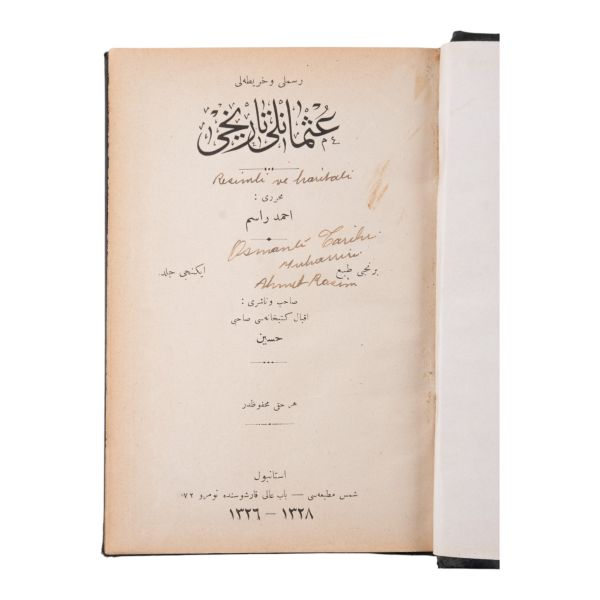 رسملی و خریطه‌لی
عثمانلی تاریخی
Resimli ve haritalı
محرری :
احمد راسم
Osmanlı Tarihi
Muharriri
برنجی طبع
ایکنجی جلد
Ahmet Rasim
صاحب و ناشری :
اقبال کتبخانه‌سی صاحبی
حسین
هر حقی محفوظدر
استانبول
شمس مطبعه‌سی — باب عالی قارشوسنده نومرو ۷۲
۱۳۲۸ — ۱۳۲۶